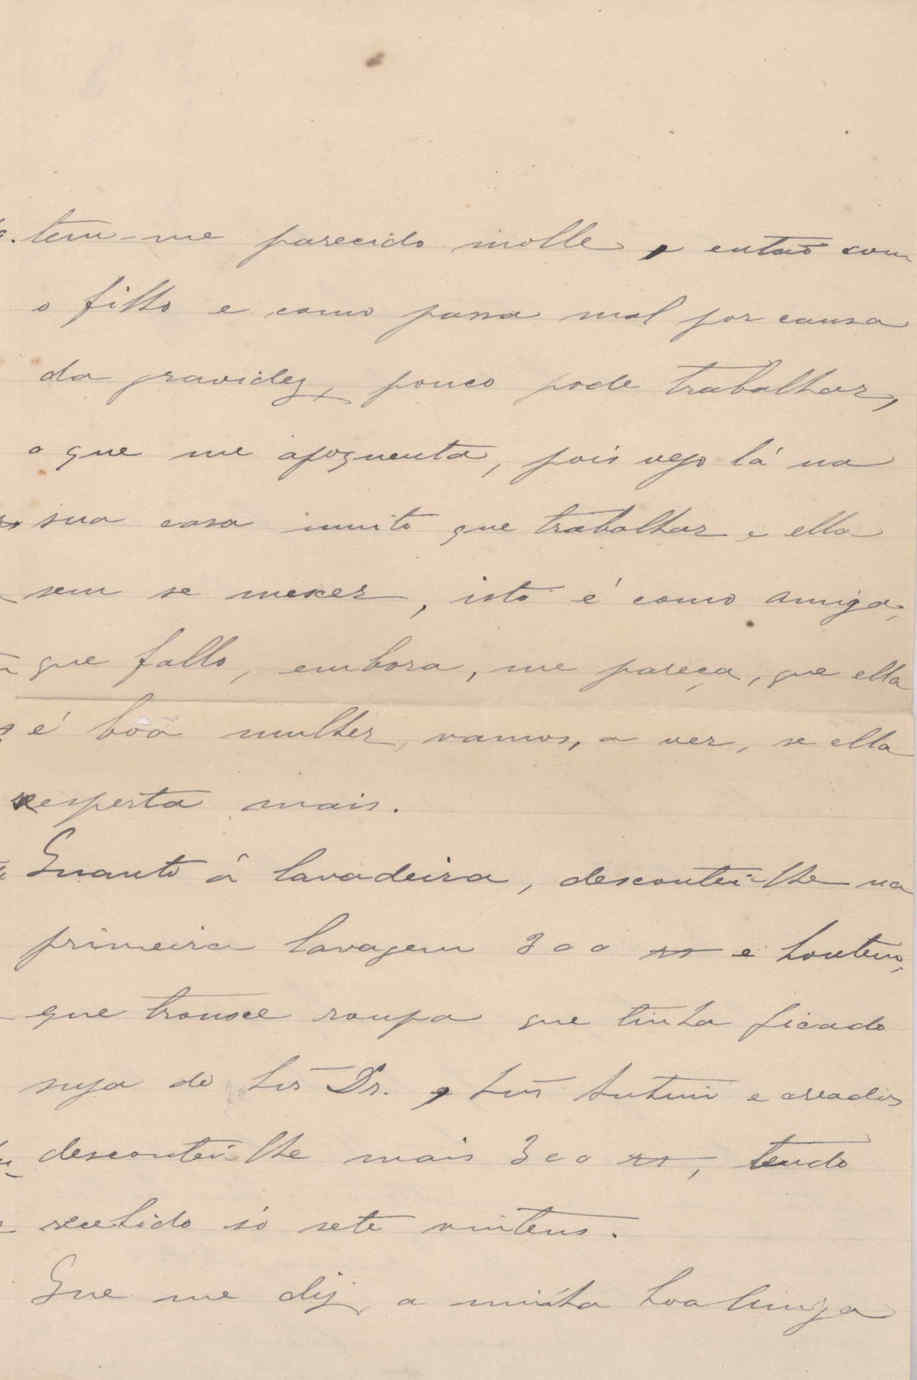 tem-me parecido molle, e então com
o filho e como passa mal por causa
da gravidez, pouco pode trabalhar,
o que me apoquenta, pois vejo lá na
sua casa muito que trabalhar e ella
sem se mexer, isto é como amiga,
que fallo, embora, me pareça, que ella
é boa mulher, vamos, a ver, se ella
esperta mais.
Quanto á lavadeira, descontei-lhe na
primeira lavagem 300 rs e hontem,
que trouxe roupa que tinha ficado
suja do Snr Dr. , Snr e creados
descontei-lhe mais 300 rs, tendo
recebido só sete vintens.
Que me diz, a minha boa Amiga